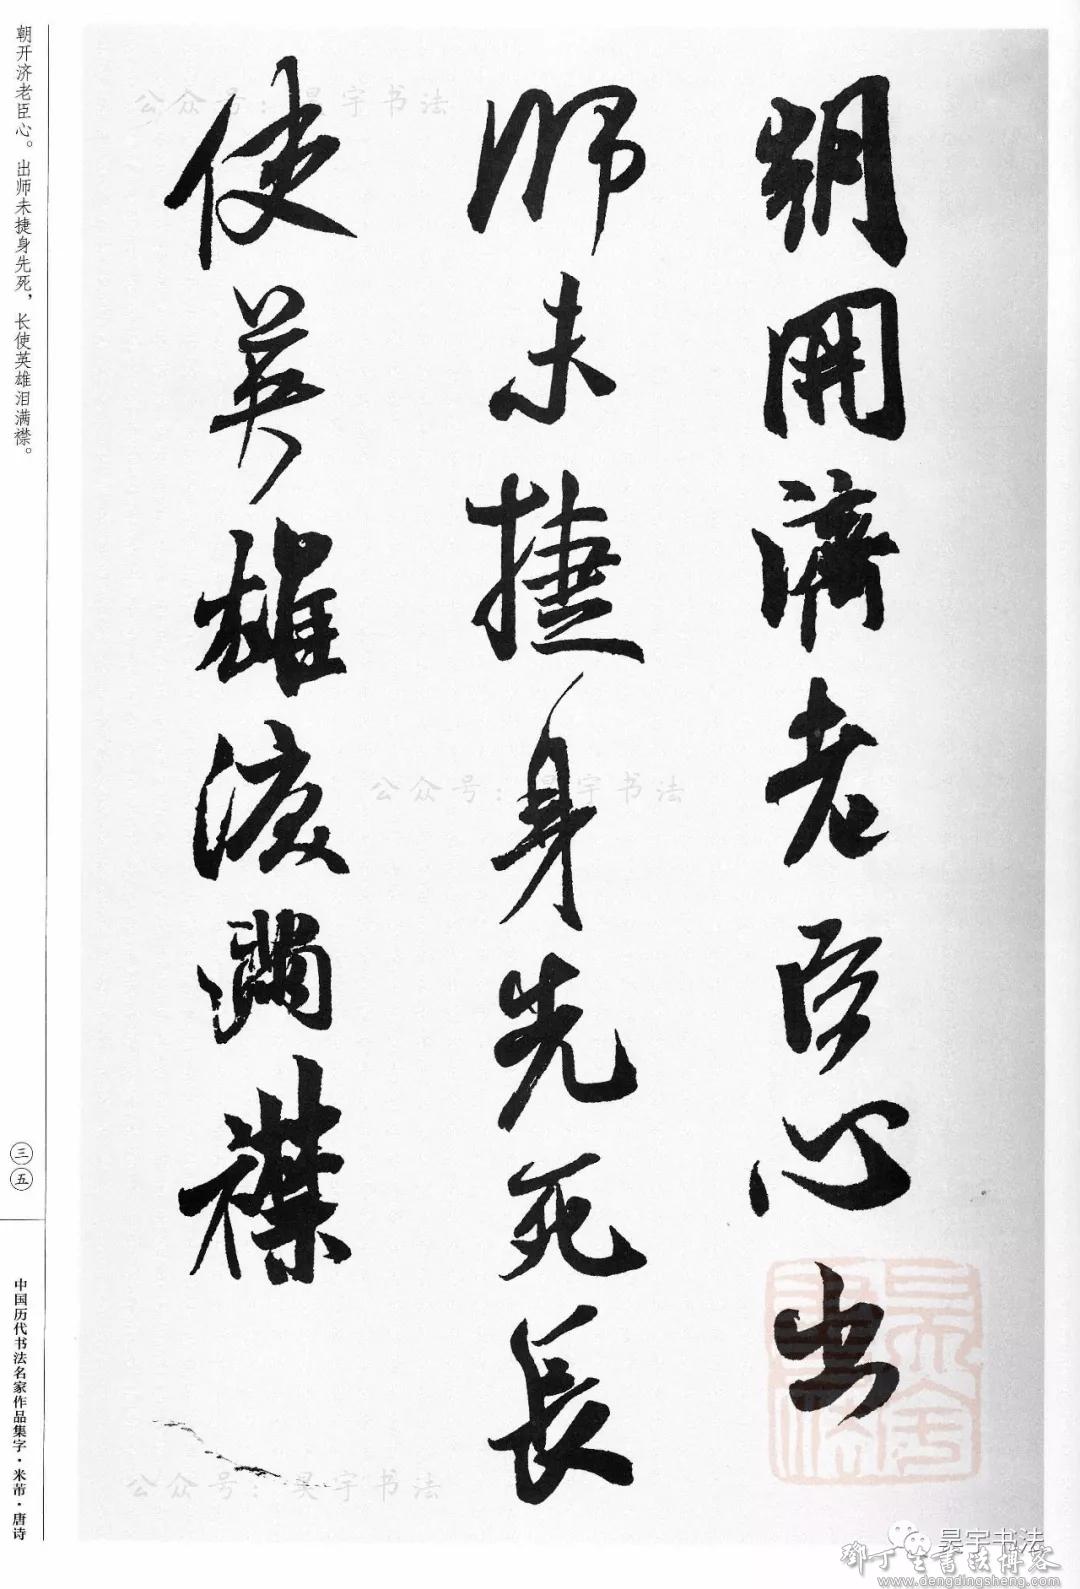 朝開濟老臣心出
師未捷身先死長
使英雄淚滿襟
朝开济老臣心。出师未捷身先死，长使英雄泪满襟。
三五
中国历代书法名家作品集字·米芾·唐诗
公众号：昊宇书法
公众号：昊宇书法
公众号：昊宇书法
昊宇书法
鄧丁生書法博客
www.dengdingsheng.com